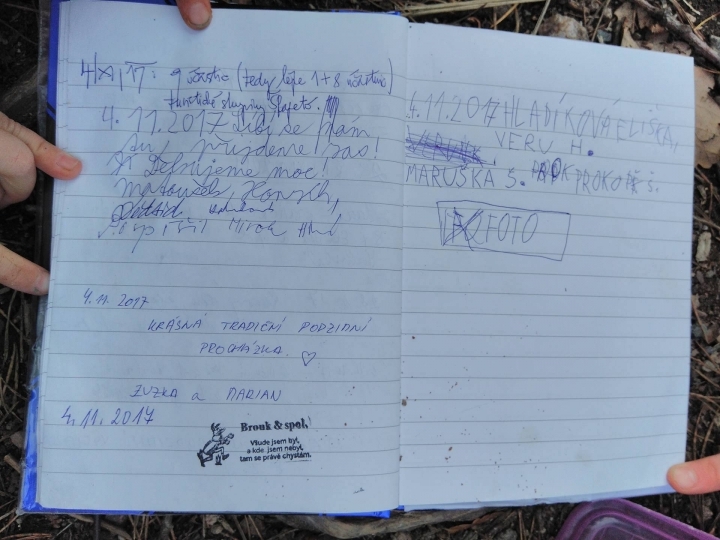 4/XI/17: účastn (tedy lépe 1+8 účastníků)
turistické skupiny Štafeta.
4.11.2017 Líbí se nám
tu, přijdeme zas!
Děkujeme moc!
Matoušek, Honzík,
Mirek
4.11.2017
KRÁSNÁ TRADIČNÍ PODZIMNÍ
PROCHÁZKA. ♡
ZUZKA a MARIAN
4.11.2017
Brouk & spol.
Všude jsem byl,
a kde jsem nebyl,
tam se právě chystám.
4.11.2017 HLADÍKOVÁ ELIŠKA,
VERU H.
MARUŠKA S. PROKOP Š.
FOTO